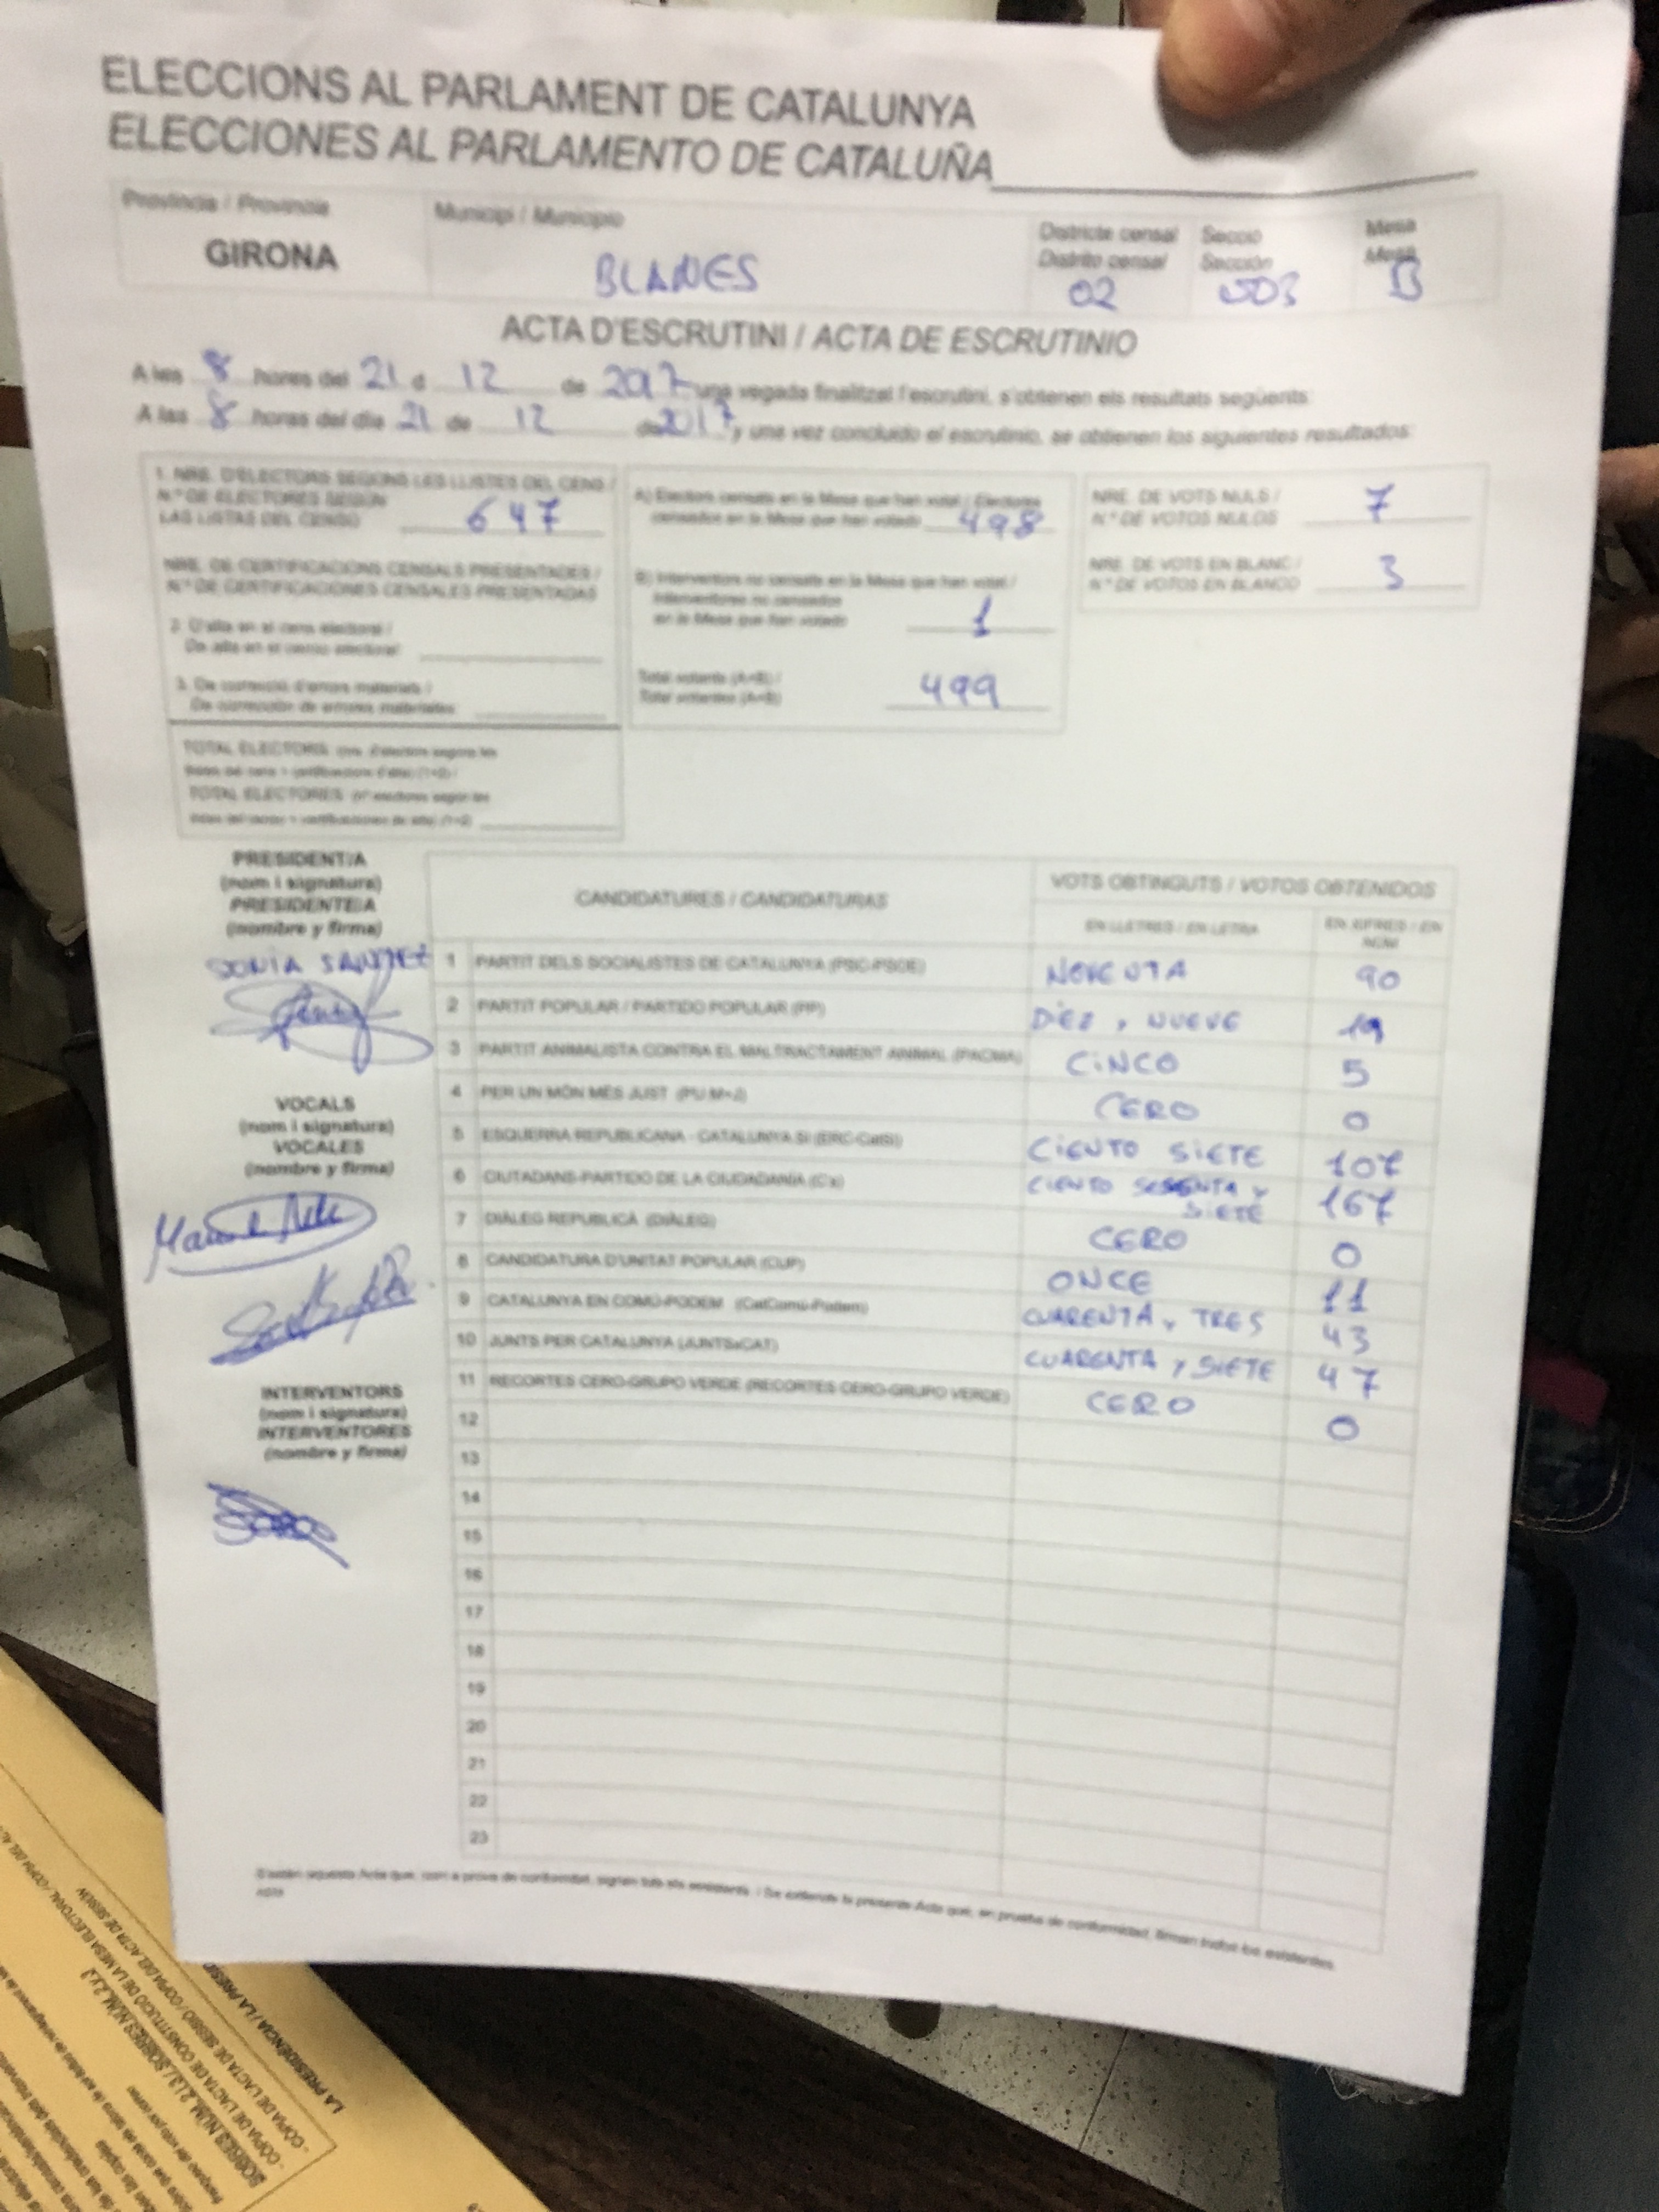 ELECCIONS AL PARLAMENT DE CATALUNYA
ELECCIONES AL PARLAMENTO DE CATALUÑA
Província / Provincia
GIRONA
Municipi / Municipio
BLANES
Districte censal
Distrito censal
02
Secció
Sección
003
Mesa
Mesa
B
ACTA D'ESCRUTINI / ACTA DE ESCRUTINIO
A les 8 hores del 21 d 12 de 2017 una vegada finalitzat l'escrutini, s'obtenen els resultats següents:
A las 8 horas del día 21 de 12 de 2017 y una vez concluido el escrutinio, se obtienen los siguientes resultados:
1. NRE. D'ELECTORS SEGONS LES LLISTES DEL CENS /
N.º DE ELECTORES SEGÚN
LAS LISTAS DEL CENSO 647
NRE. DE CERTIFICACIONS CENSALS PRESENTADES /
N.º DE CERTIFICACIONES CENSALES PRESENTADAS
2. D'alta en el cens electoral /
De alta en el censo electoral
3. De correcció d'errors materials /
De corrección de errores materiales
TOTAL ELECTORS: (nre. d'electors segons les
llistes del cens + certificacions d'alta) (1+2) /
TOTAL ELECTORES: (nº electores según las
listas del censo + certificaciones de alta) (1+2)
A) Electors censats en la Mesa que han votat / Electores
censados en la Mesa que han votado 498
B) Interventors no censats en la Mesa que han votat /
Interventores no censados
en la Mesa que han votado 1
Total votants (A+B) /
Total votantes (A+B) 499
NRE. DE VOTS NULS /
N.º DE VOTOS NULOS 7
NRE. DE VOTS EN BLANC /
N.º DE VOTOS EN BLANCO 3
PRESIDENT/A
(nom i signatura)
PRESIDENTE/A
(nombre y firma)
SONIA
VOCALS
(nom i signatura)
VOCALES
(nombre y firma)
INTERVENTORS
(nom i signatura)
INTERVENTORES
(nombre y firma)
CANDIDATURES / CANDIDATURAS
VOTS OBTINGUTS / VOTOS OBTENIDOS
EN LLETRES / EN LETRA
EN XIFRES / EN
1 PARTIT DELS SOCIALISTES DE CATALUNYA (PSC-PSOE) NOVENTA 90
2 PARTIT POPULAR / PARTIDO POPULAR (PP) DIEZ Y NUEVE 19
3 PARTIT ANIMALISTA CONTRA EL MALTRACTAMENT ANIMAL (PACMA) CINCO 5
4 PER UN MÓN MÉS JUST (PUM+J) CERO 0
5 ESQUERRA REPUBLICANA - CATALUNYA SÍ (ERC-CatSí) CIENTO SIETE 107
6 CIUTADANS-PARTIDO DE LA CIUDADANÍA (C's) CIENTO SESENTA Y SIETE 167
7 DIÀLEG REPUBLICÀ (DIÀLEG) CERO 0
8 CANDIDATURA D'UNITAT POPULAR (CUP) ONCE 11
9 CATALUNYA EN COMÚ-PODEM (CatComú-Podem) CUARENTA Y TRES 43
10 JUNTS PER CATALUNYA (JUNTSxCAT) CUARENTA Y SIETE 47
11 RECORTES CERO-GRUPO VERDE (RECORTES CERO-GRUPO VERDE) CERO 0
12
13
14
15
16
17
18
19
20
21
22
23
S'estén aquesta Acta que, com a prova de conformitat, signen tots els assistents. / Se extiende la presente Acta que, en prueba de conformidad, firman todos los asistentes.
LA PRESIDÈNCIA / LA
- CÒPIA DE L'ACTA DE CONSTITUCIÓ DE LA MESA ELECTORAL /
- CÒPIA DE L'ACTA DE SESSIÓ / COPIA DEL ACTA DE SESIÓN
SOBRES NÚM. 2 I 3 / SOBRES NÚM. 2 y 3